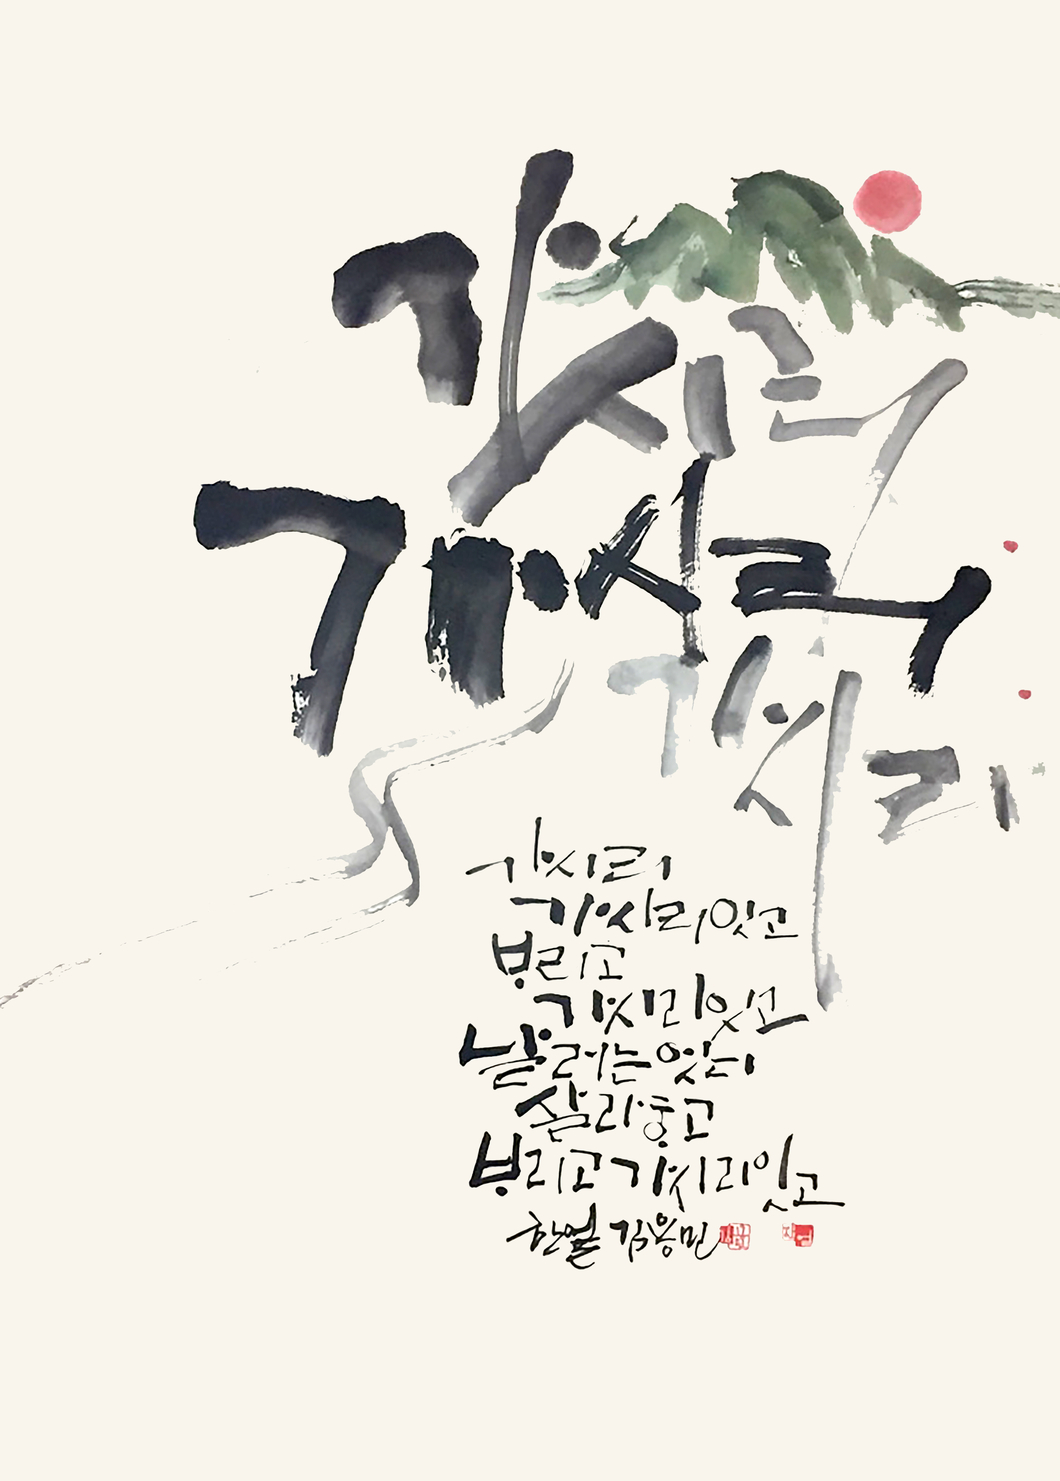 가시리
가시리
가시리
가시리
가시리잇고
ᄇᆞ리고
가시리잇고
날러는 엇디
살라ᄒᆞ고
ᄇᆞ리고 가시리잇고
한얼 김용민